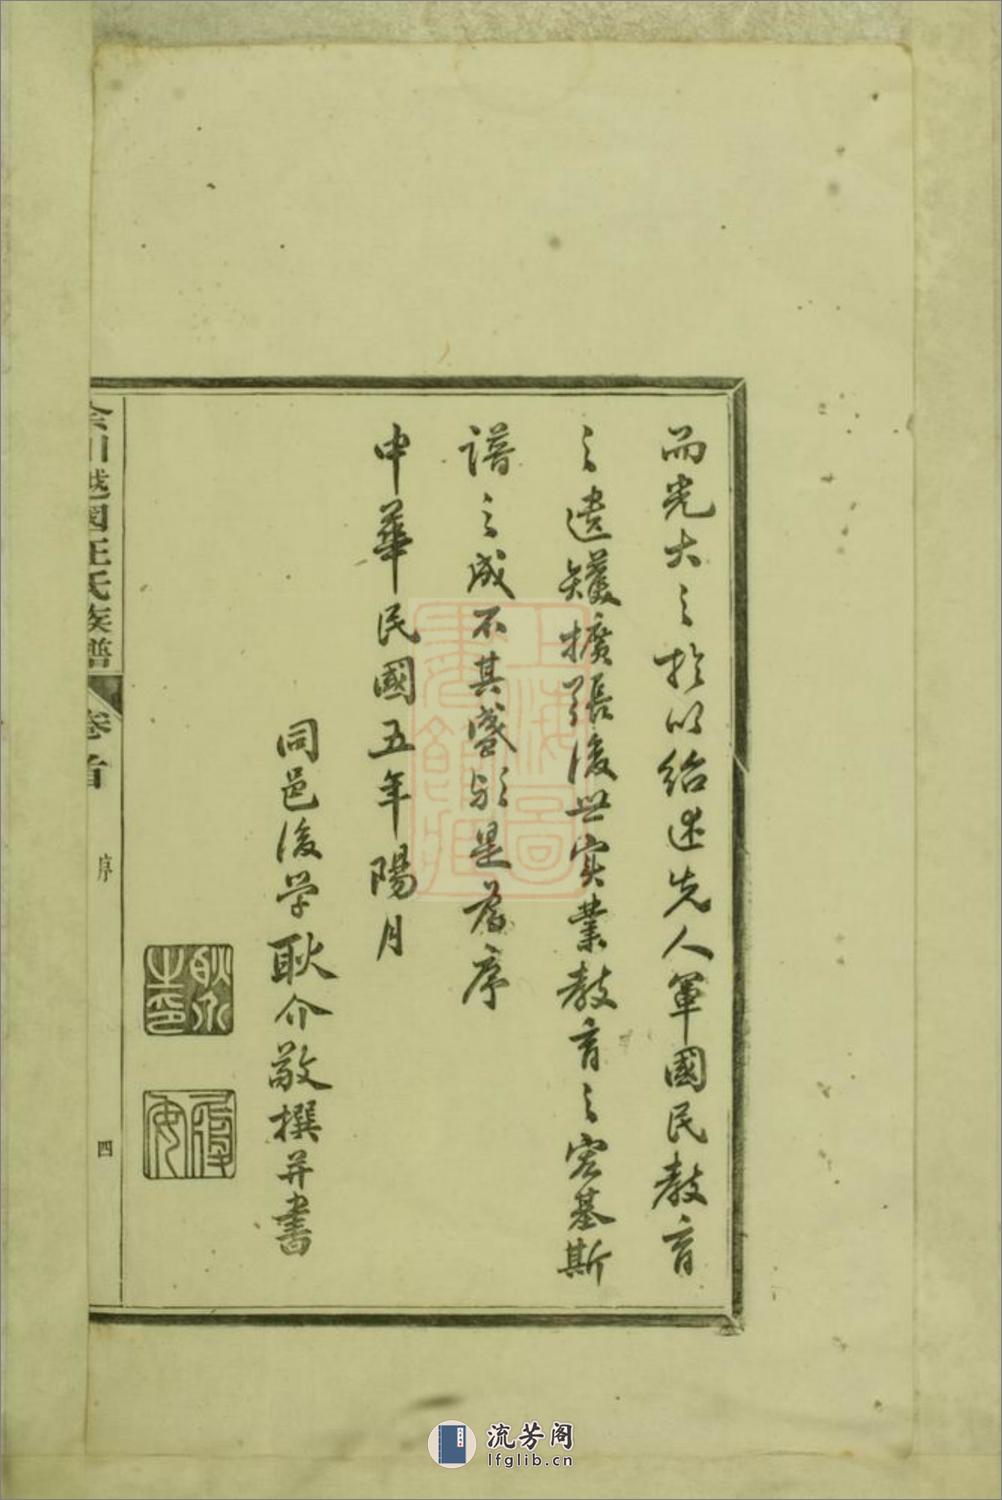 而光大之於以紹述先人軍國民教育
之遺矩擴張後世实業教育之宏基斯
譜之成不其盛欤是為序
中華民國五年陽月
同邑後学耿介敬撰并書
余川越国汪氏族譜 卷首 序 四
上海圖書館藏
流芳阁
lfglib.cn